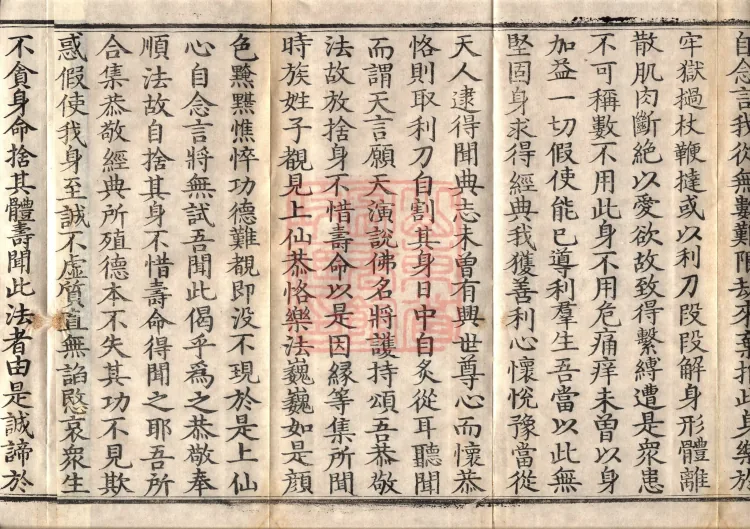 自念言我從無數難限劫來棄捐此身樂於
牢獄撾杖鞭撻或以利刀段段解身形體離
散肌肉斷絶以愛欲故致得繫縛遭是衆患
不可稱數不用此身不用危痛痒未曽以身
加益一切假使能已導利羣生吾當以此無
堅固身求得經典我獲善利心懷悅豫當從
天人逮得聞典志未曽有興世尊心而懷恭
恪則取利刀自割其身日中自炙從耳聽聞
而謂天言願天演說佛名將護持頌吾恭敬
法故放捨身不惜壽命以是因縁等集所聞
時族姓子覩見上仙恭恪樂法巍巍如是顔
色黧黑憔悴功德難覩即没不現於是上仙
心自念言將無試吾聞此偈乎爲之恭敬奉
順法故自捨其身不惜壽命得聞之耶吾所
合集恭敬經典所殖德本不失其功不見欺
惑假使我身至誠不虛質直無諂愍哀衆生
不貪身命捨其體壽聞此法者由是誠諦於